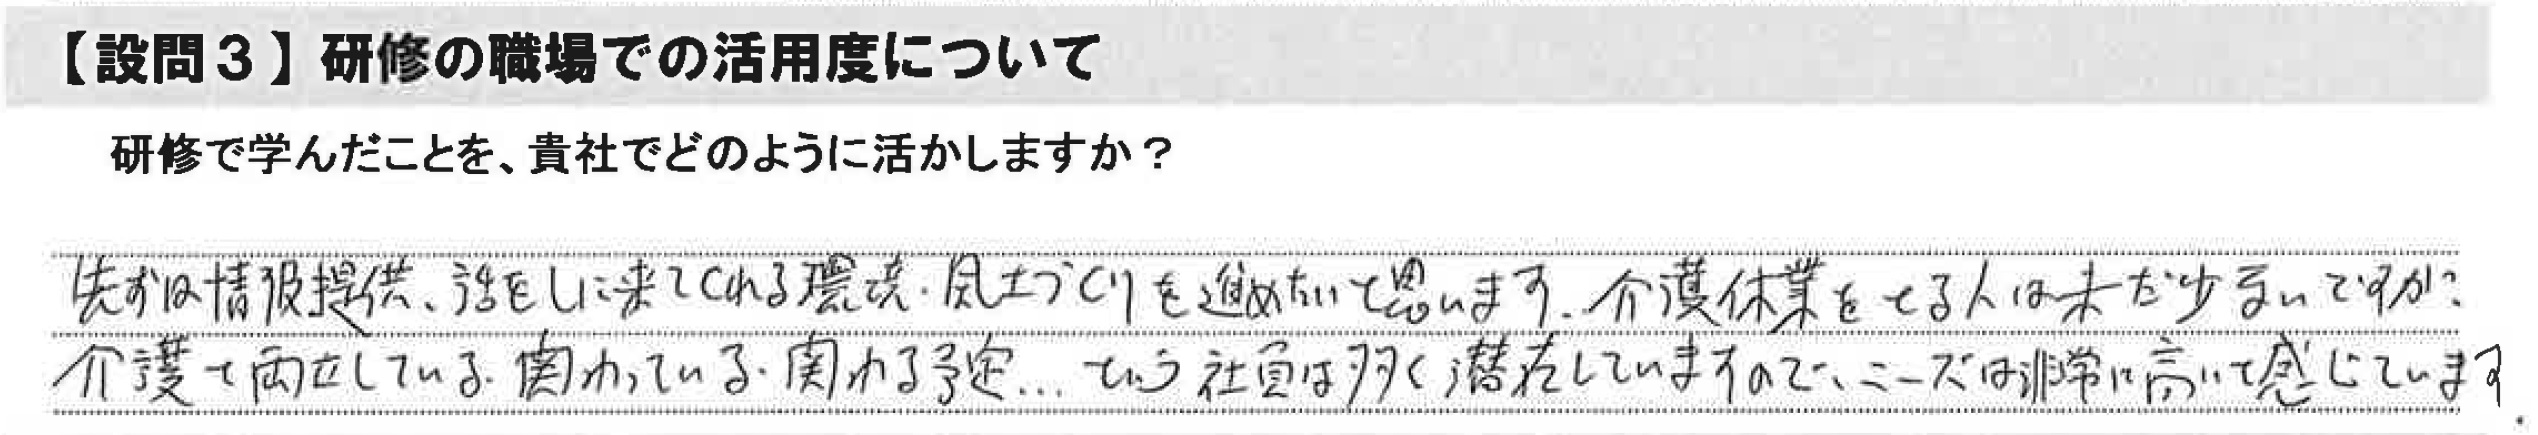 【設問３】研修の職場での活用度について
研修で学んだことを、貴社でどのように活かしますか？
先ずは情報提供、話をしに来てくれる環境・風土づくりを進めたいと思います。介護休業をとる人は未だ少ないですが、
介護と両立している・関わっている・関わる予定...という社員は多く潜在していますので、ニーズは非常に高いと感じています。